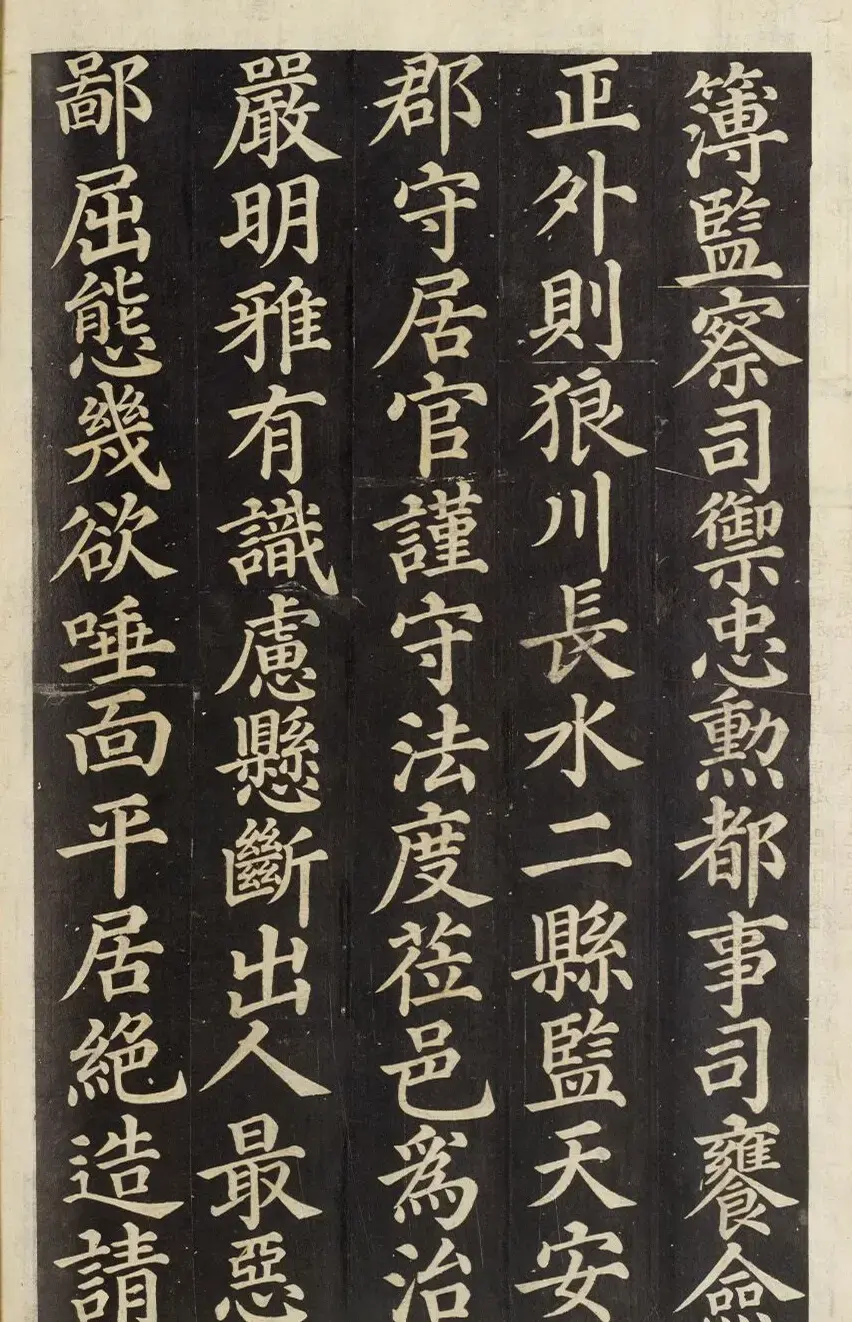 簿監察司禦忠勲都事司饔僉
正外則狼川長水二縣監天安
郡守居官謹守法度莅邑爲治
嚴明雅有識慮懸斷出人最惡
鄙屈態幾欲唾面平居絶造請